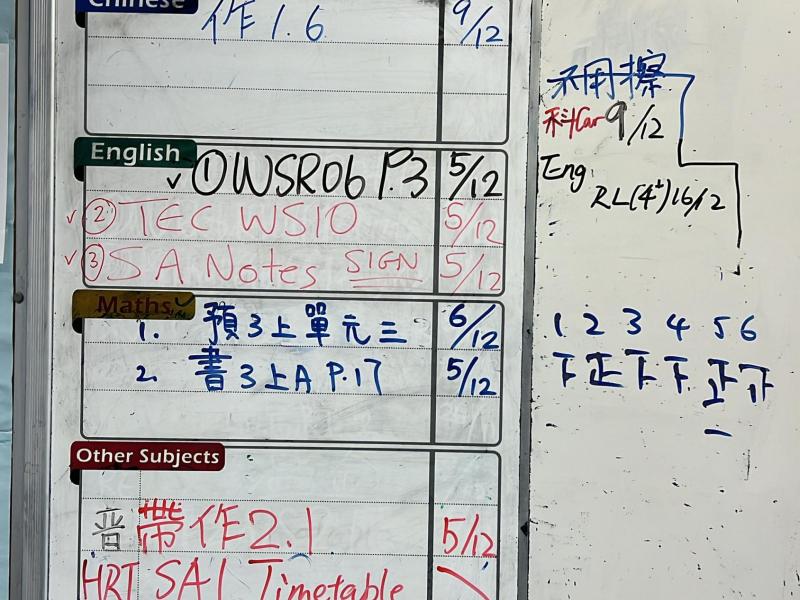 Chinese
作1.6 9/12
English
✓ ①WSR06 P.3 5/12
✓ ② TEC WS10 5/12
✓ ③ SA Notes SIGN 5/12
Maths ✓
1. 預3上單元三 6/12
2. 書3上A P.17 5/12
Other Subjects
音 帶作2.1 5/12
HRT SA1 Timetable
不用擦
科Car 9/12
Eng
RL(4*) 16/12
1 2 3 4 5 6
下 正 下 下 正 下